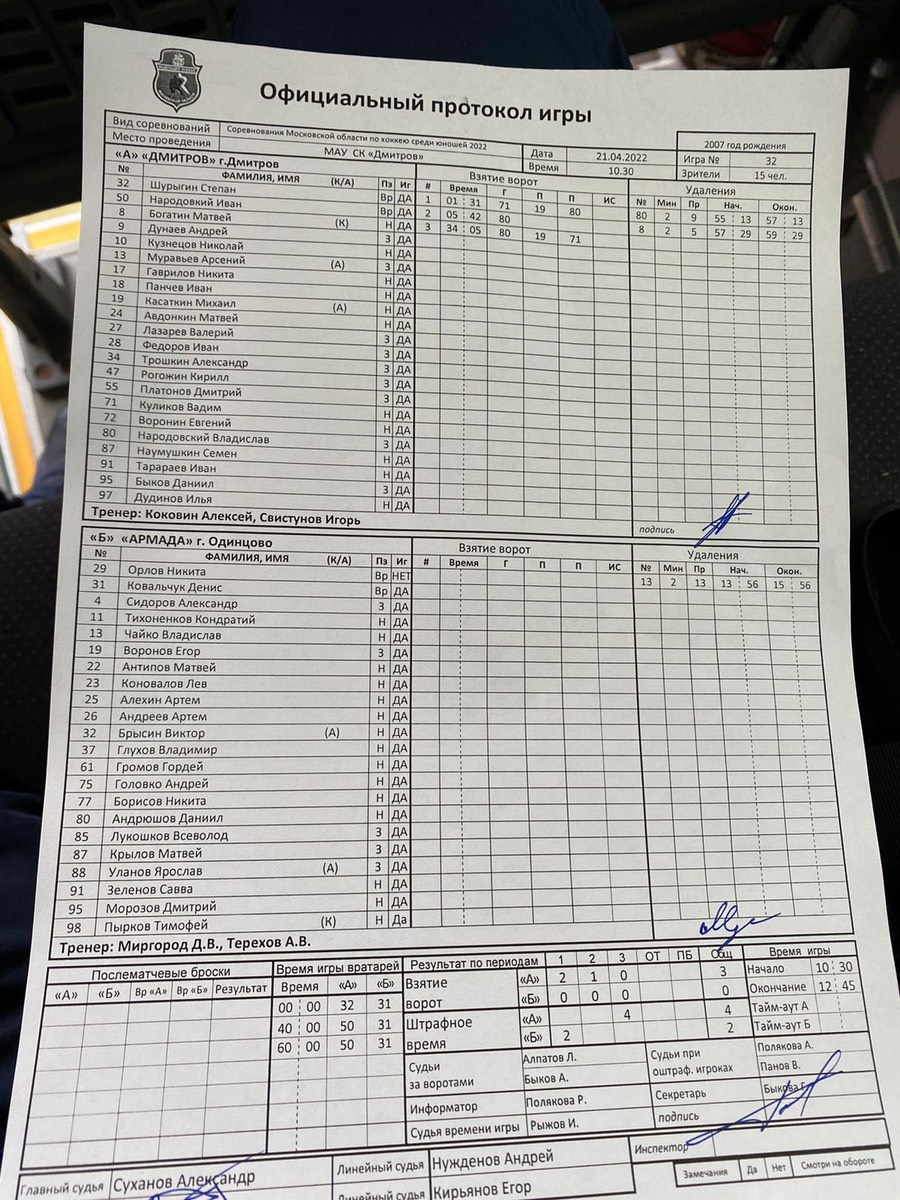 Официальный протокол игры
Вид соревнований Соревнования Московской области по хоккею среди юношей 2022 2007 год рождения
Место проведения МАУ СК «Дмитров» Дата 21.04.2022 Игра № 32
Время 10.30 Зрители 15 чел.
«А» «ДМИТРОВ» г.Дмитров Взятие ворот Удаления
№ ФАМИЛИЯ, ИМЯ (К/А) Пз Иг # Время Г П П ИС № Мин Пр Нач. Окон.
32 Шурыгин Степан Вр ДА 1 01 31 71 19 80 80 2 9 55 13 57 13
50 Народовкий Иван Вр ДА 2 05 42 80 8 2 5 57 29 59 29
8 Богатин Матвей Н ДА 3 34 05 80 19 71
9 Дунаев Андрей (К) З ДА
10 Кузнецов Николай Н ДА
13 Муравьев Арсений З ДА
17 Гаврилов Никита (А) Н ДА
18 Панчев Иван Н ДА
19 Касаткин Михаил Н ДА
24 Авдонкин Матвей (А) Н ДА
27 Лазарев Валерий З ДА
28 Федоров Иван З ДА
34 Трошкин Александр З ДА
47 Рогожин Кирилл З ДА
55 Платонов Дмитрий З ДА
71 Куликов Вадим Н ДА
72 Воронин Евгений Н ДА
80 Народовский Владислав Н ДА
87 Наумушкин Семен З ДА
91 Тарараев Иван Н ДА
95 Быков Даниил З ДА
97 Дудинов Илья Н ДА
Тренер: Коковин Алексей, Свистунов Игорь подпись
«Б» «АРМАДА» г. Одинцово Взятие ворот Удаления
№ ФАМИЛИЯ, ИМЯ (К/А) Пз Иг # Время Г П П ИС № Мин Пр Нач. Окон.
29 Орлов Никита Вр НЕТ 13 2 13 13 56 15 56
31 Ковальчук Денис Вр ДА
4 Сидоров Александр З ДА
11 Тихоненков Кондратий Н ДА
13 Чайко Владислав Н ДА
19 Воронов Егор З ДА
22 Антипов Матвей Н ДА
23 Коновалов Лев Н ДА
25 Алехин Артем Н ДА
26 Андреев Артем Н ДА
32 Брысин Виктор (А) Н ДА
37 Глухов Владимир Н ДА
61 Громов Гордей Н ДА
75 Головко Андрей Н ДА
77 Борисов Никита Н ДА
80 Андрюшов Даниил Н ДА
85 Лукошков Всеволод З ДА
87 Крылов Матвей З ДА
88 Уланов Ярослав (А) З ДА
91 Зеленов Савва Н ДА
95 Морозов Дмитрий Н ДА
98 Пырков Тимофей (К) Н Да
Тренер: Миргород Д.В., Терехов А.В.
Послематчевые броски Время игры вратарей Результат по периодам 1 2 3 ОТ ПБ Общ Время игры
«А» «Б» Вр «А» Вр «Б» Результат Время «А» «Б» Взятие ворот «А» 2 1 0 3 Начало 10 30
00 00 32 31 «Б» 0 0 0 0 Окончание 12 45
40 00 50 31 Штрафное время «А» 4 4 Тайм-аут А
60 00 50 31 «Б» 2 2 Тайм-аут Б
Судьи за воротами Алпатов Л. Судьи при оштраф. игроках Полякова А.
Быков А. Панов В.
Информатор Полякова Р. Секретарь Быкова Г.
Судья времени игры Рыжов И. подпись
Главный судья Суханов Александр Линейный судья Нужденов Андрей Инспектор
Линейный судья Кирьянов Егор Замечания Да Нет Смотри на обороте